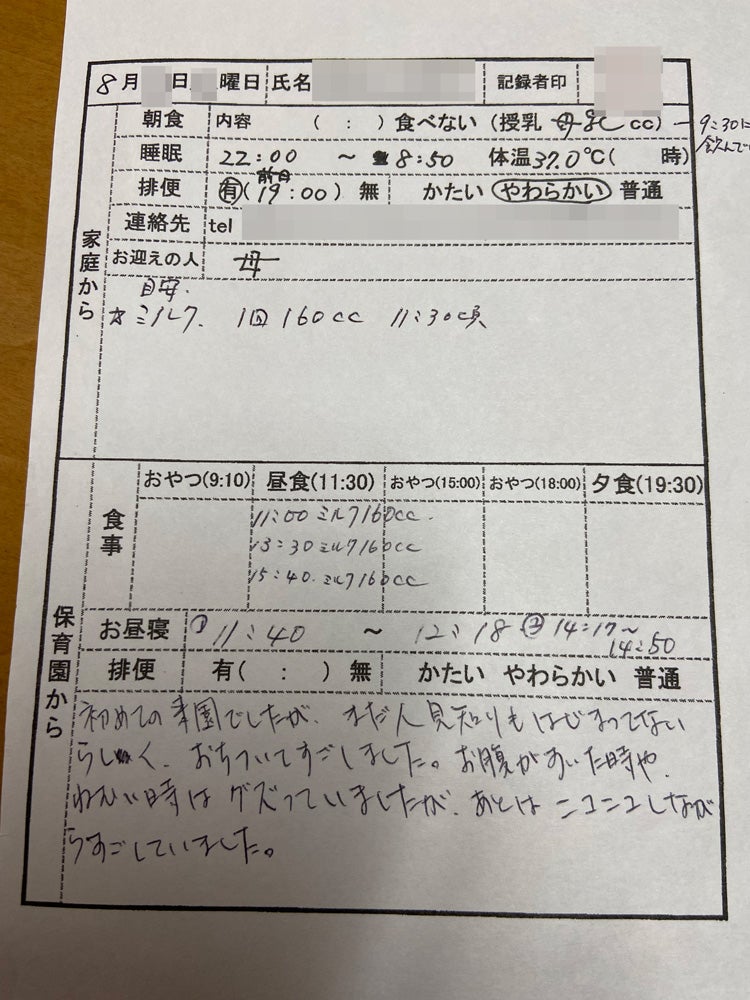 8月 日 曜日 氏名 記録者印
家庭から
朝食 内容 ( : ) 食べない (授乳 母乳 cc) → 9:30に
飲んで
睡眠 22:00 ～ 8:50 体温37.0℃( 時)
排便 有(前日19:00) 無 かたい やわらかい 普通
連絡先 tel
お迎えの人 母
目安.
☆ミルク. 1回 160cc 11:30頃
保育園から
食事
おやつ(9:10) 昼食(11:30) おやつ(15:00) おやつ(18:00) 夕食(19:30)
11:00 ミルク160cc.
13:30 ミルク160cc
15:40. ミルク160cc
お昼寝 ① 11:40 ～ 12:18 ② 14:17～
14:50
排便 有( : ) 無 かたい やわらかい 普通
初めての来園でしたが、まだ人見知りもはじまってない
らしく、おちついてすごしました。お腹がすいた時や、
ねむい時はグズっていましたが、あとはニコニコしなが
らすごしていました。